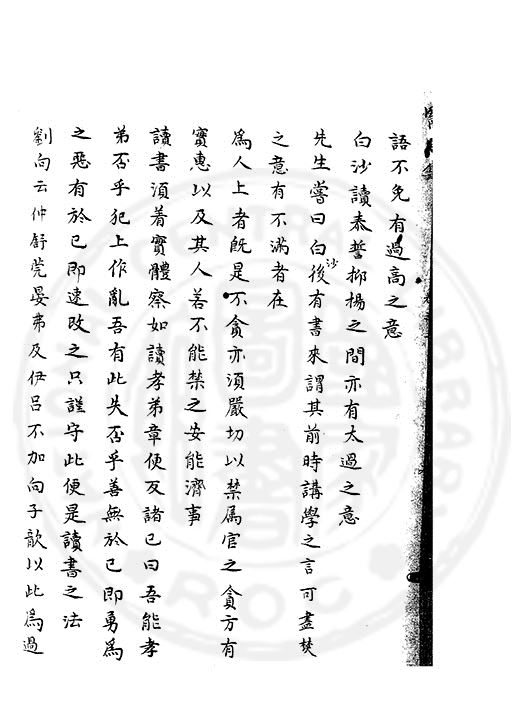 語不免有過高之意
白沙讀泰誓抑揚之間亦有太過之意
先生嘗曰白沙後有書來謂其前時講學之言可盡焚
之意有不滿者在
為人上者旣是不貪亦須嚴切以禁属官之貪方有
實惠以及其人若不能禁之安能濟事
讀書須着實體察如讀孝弟章便反諸己曰吾能孝
弟否乎犯上作亂吾有此失否乎善無於己即勇為
之惡有於己即速改之只謹守此便是讀書之法
劉向云仲舒莞晏弗及伊吕不加向子歆以此為過